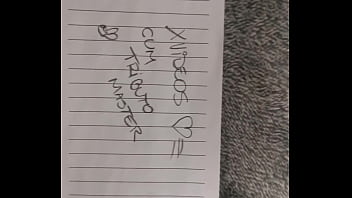 XVIDEOS ♡=
CUM
TRIBUTO
MASTER